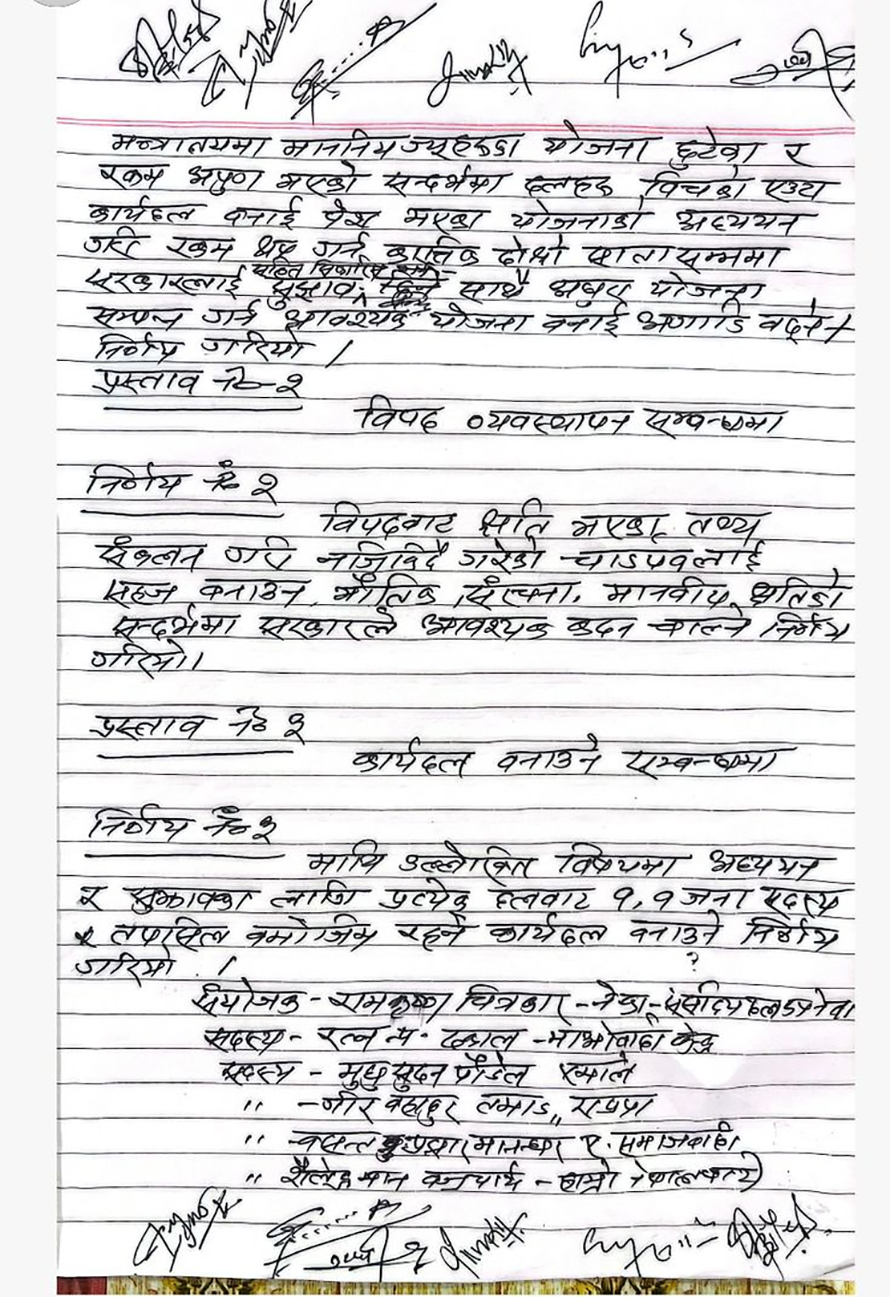 मन्त्रालयमा माननिय ज्यूहरुका योजना छुटेका र
रकम अपुग भएको सन्दर्भमा दलहरु विचको एउटा
कार्यदल बनाई पेश भएका योजनाको अध्ययन
गरि रकम थप गर्न कार्त्तिक दोश्रो साता सम्ममा
सरकारलाई सुझाव साथै अधुरा योजना
सम्पन्न गर्न आवश्यक योजना बनाई अगाडि बढ्ने
निर्णय गरियो ।
प्रस्ताव नं २
विपद व्यवस्थापन सम्बन्धमा
निर्णय नं २
विपदबाट क्षति भएका तथ्य
संकलन गरि नजिकिदै गरेको चाडपर्वलाई
सहज बनाउन, भौतिक संरचना, मानवीय क्षतिको
सन्दर्भमा सरकारले आवश्यक कदम चाल्ने निर्णय
गरियो।
प्रस्ताव नं ३
कार्यदल बनाउने सम्बन्धमा
निर्णय नं ३
माथि उल्लेखित विषयमा अध्ययन
र सुझावका लागि प्रत्येक दलबाट १,१ जना सदस्य
र तपसिल बमोजिम रहने कार्यदल बनाउने निर्णय
गरियो ।
संयोजक - रामकृष्ण चित्रकार - नेका - संसदिय दलका
सदस्य - रत्न प्र. ढकाल - माओवादी केन्द्र
सदस्य - मधु सुदन पौडेल एमाले
" - वीर बहादुर लामा, राप्रपा
" - बसन्त मानन्धर ए. समाजवादी
" शैलेन्द्र मान बज्राचार्य - हाम्रो नेपाल पार्टी